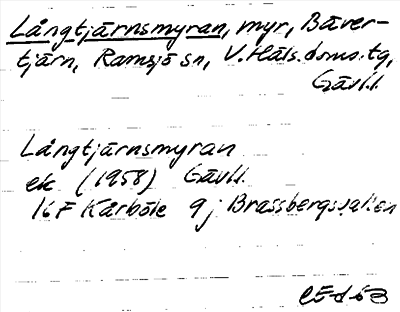 Långtjärnsmyran, myr, Bäver-
tjärn, Ramsjö sn, V. Häls. doms. tg,
Gävl.l.
Långtjärnsmyran
ek (1958) Gävl.l.
16 F Kårböle 9 j Brassbergsvallen